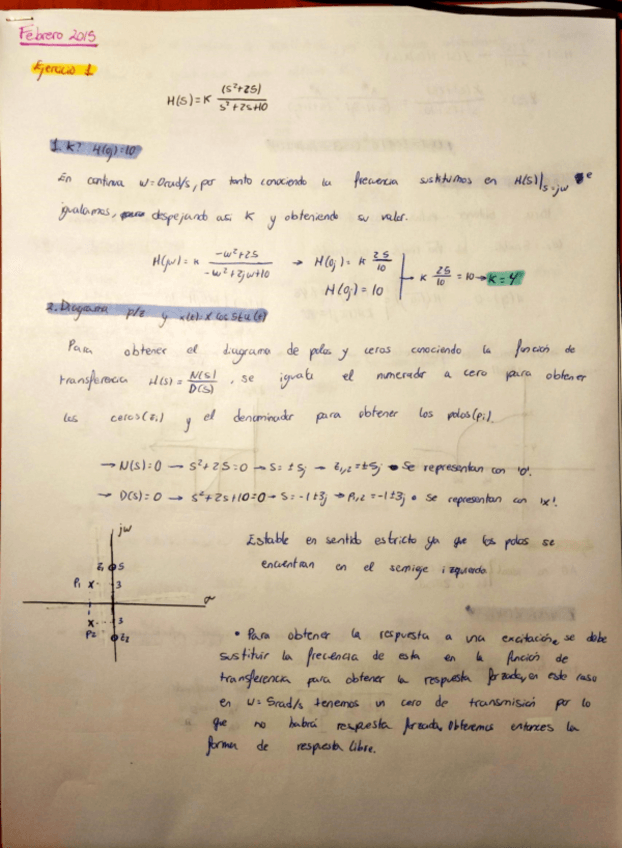 Febrero 2015
Ejercicio 1
H(s) = K (s²+25) / s²+2s+10
1. K? H(0j)=10
En continua w=0rad/s, por tanto conociendo la frecuencia sustituimos en H(s)|s=jw e
igualamos, despejando asi K y obteniendo su valor.
H(jw) = K -w²+25 / -w²+2jw+10 → H(0j) = K 25/10 K 25/10 = 10 → K=4
H(0j) = 10
2. Diagrama p/z y
Para obtener el diagrama de polos y ceros conociendo la función de
transferencia H(s) = N(s)/D(s), se iguala el numerador a cero para obtener
los ceros(zi) y el denominador para obtener los polos(pi).
→ N(s)=0 → s²+25=0 → s=±5j → z1,2=±5j • Se representan con 'o'.
→ D(s)=0 → s²+2s+10=0 → s=-1±3j → P1,2=-1±3j • Se representan con 'x'.
jw
Z1 5
P1 x 3
σ
x 3
P2 Z2
Estable en sentido estricto ya que los polos se
encuentran en el semieje izquierdo.
• Para obtener la respuesta a una excitación, se debe
sustituir la frecuencia de esta en la función de
transferencia para obtener la respuesta forzada, en este caso
en w=5rad/s tenemos un cero de transmisión por lo
que no habrá respuesta forzada, Obtenemos entonces la
forma de respuesta libre.